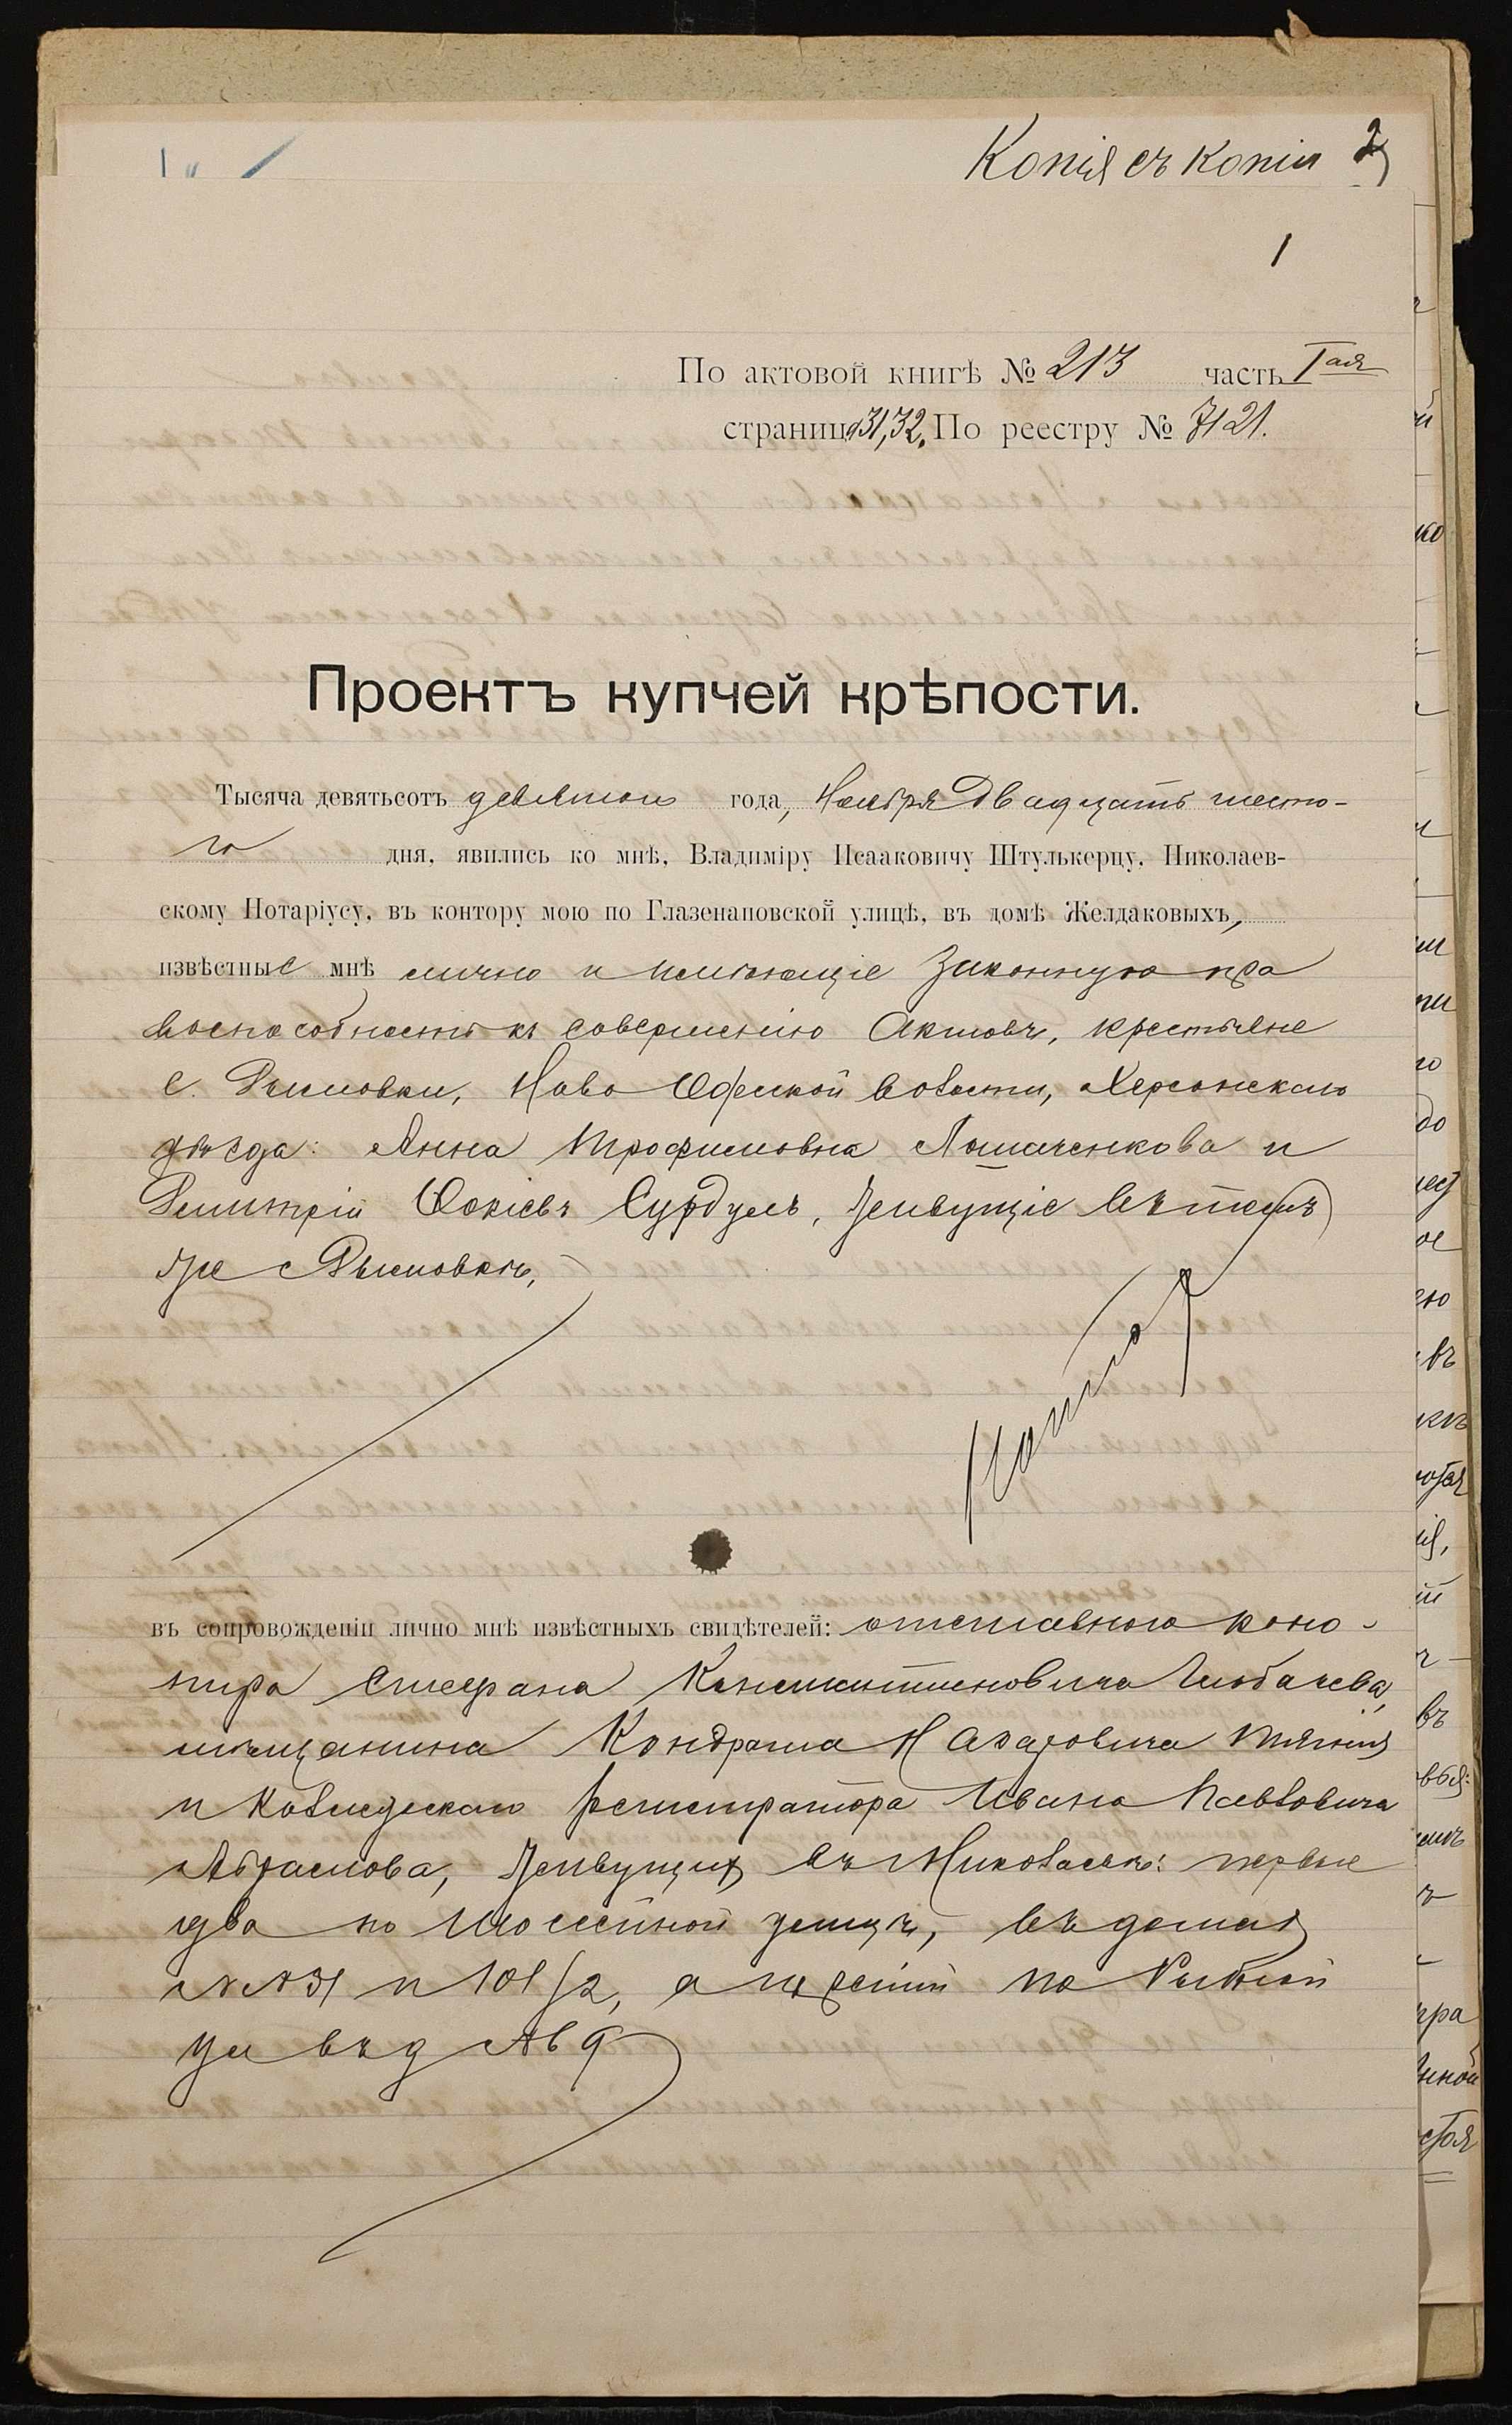 Копія съ копіи 2
1
По актовой книгѣ № 213 часть Iая
страница 31, 32. По реестру № 7121.
Проектъ купчей крѣпости.
Тысяча девятьсотъ девятого года, Ноября двадцать шесто-
го дня, явились ко мнѣ, Владиміру Исааковичу Штулькерцу, Николаев-
скому Нотаріусу, въ контору мою по Глазенаповской улицѣ, въ домѣ Желдаковыхъ,
извѣстные мнѣ лично и имѣющіе законную пра
воспособность къ совершенію актовъ, крестьяне
с. Дымовки, Ново Одесской волости, Херсонскаго
уѣзда: Анна Трофимовна Ломаченкова и
Димитрій Фокіевъ Сурдулъ, живущіе въ той
же Дымовкѣ,
въ сопровожденіи лично мнѣ извѣстныхъ свидѣтелей: отставного коно-
нира Стефана Константиновича
мѣщанина Кондрата Назаровича
и Коллежскаго регистратора Ивана Павловича
Абрамова, живущихъ въ Николаевѣ: первые
два по Шоссейной улицѣ, въ домахъ
№№ 31 и 101/2, а третій по Рыбной
ул въ д № 9